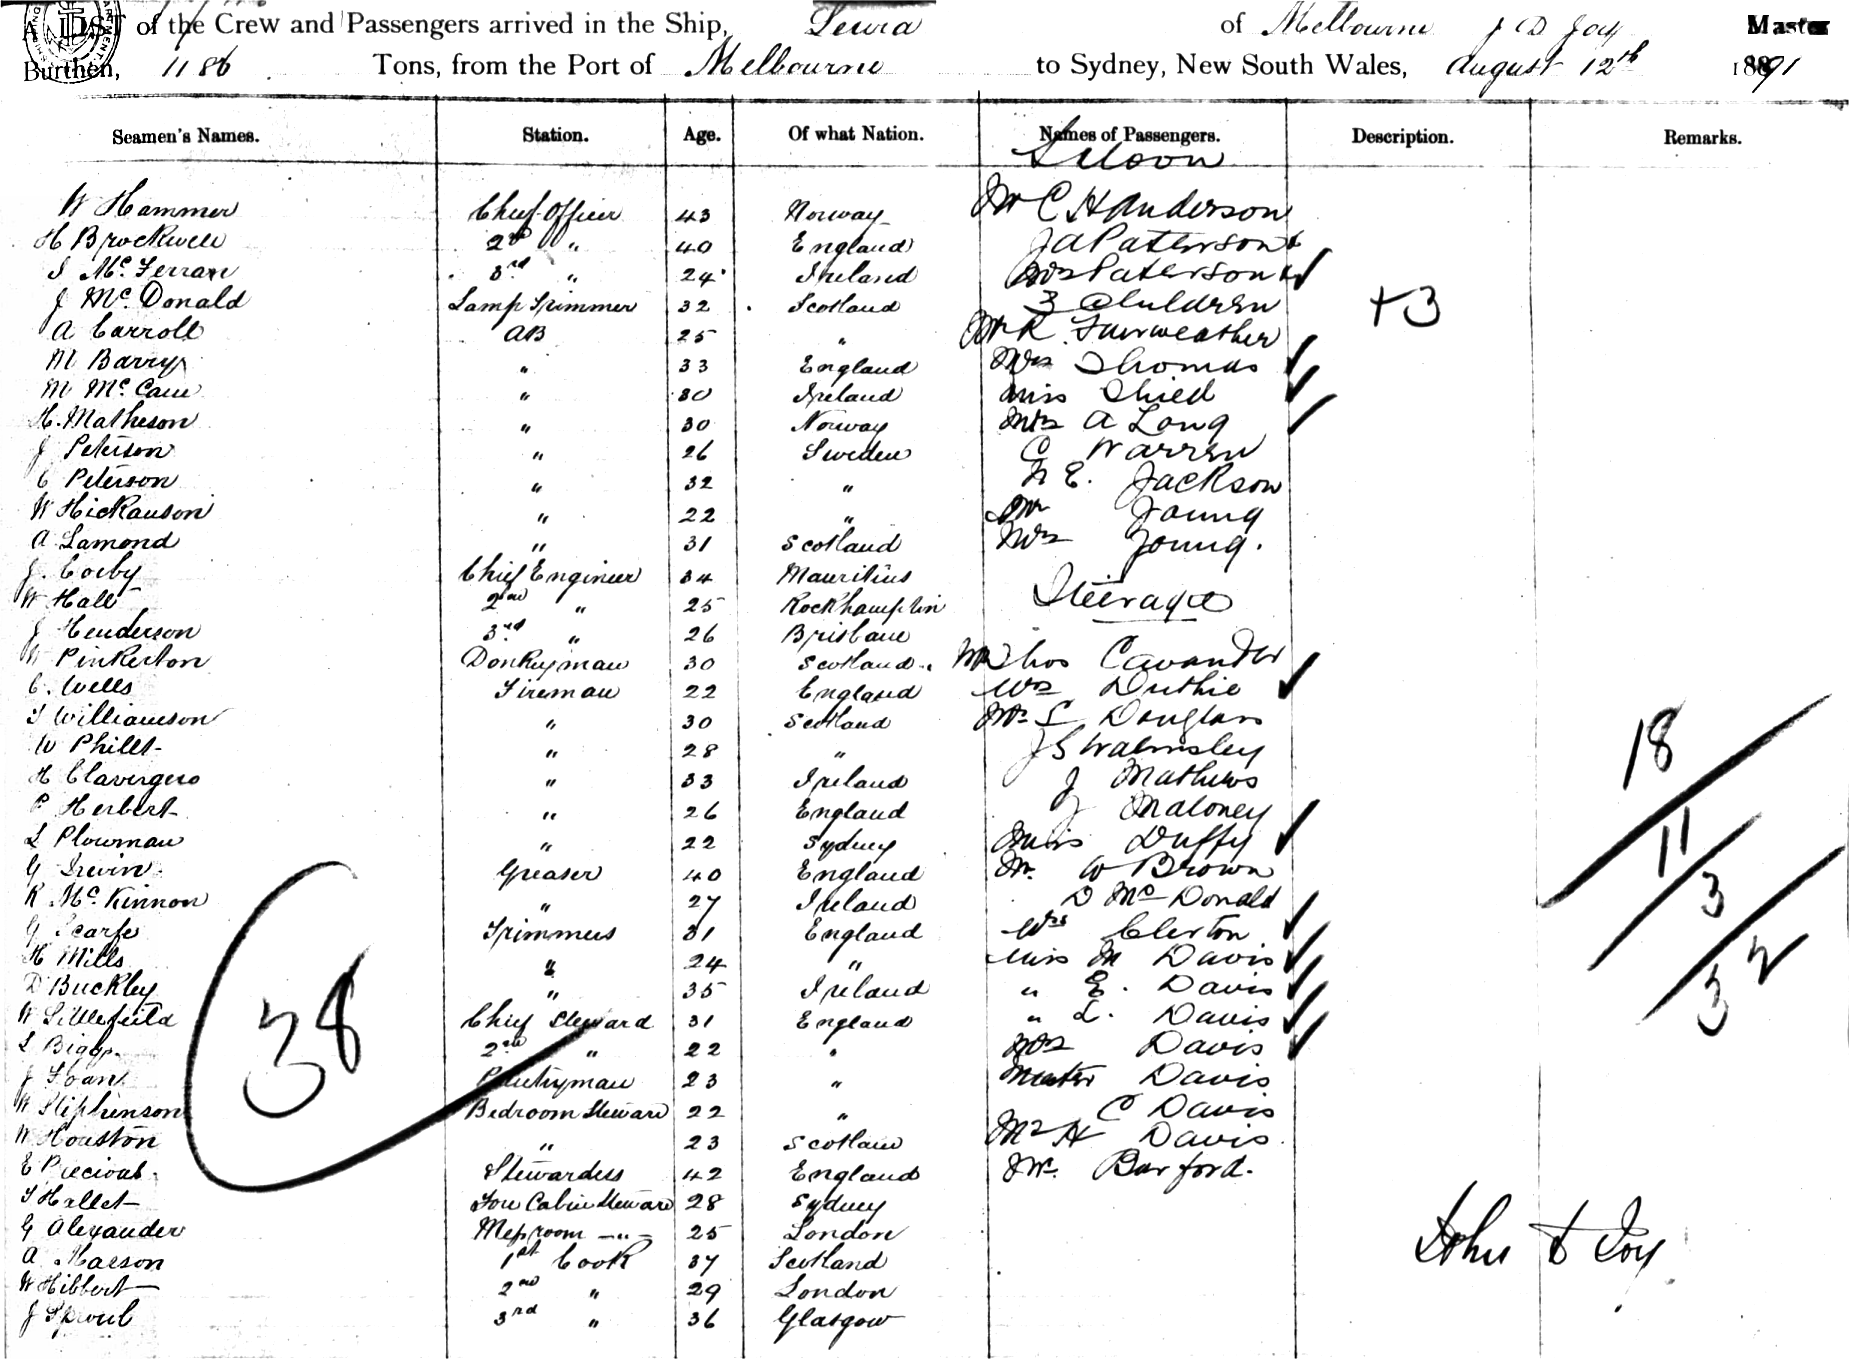 A LIST of the Crew and Passengers arrived in the Ship, Leura of Melbourne J D Joy Master
Burthen, 1186 Tons, from the Port of Melbourne to Sydney, New South Wales, August 12th 1891
Seamen's Names. Station. Age. Of what Nation. Names of Passengers. Description. Remarks.
Saloon
W Hammer Chief Officer 43 Norway Mr C H Anderson
H Brockwell 2nd " 40 England J A Paterson
S McFerran 3rd " 24 Ireland Mrs Paterson
J McDonald Lamp Trimmer 32 Scotland 3 Children +3
A Carroll AB 25 " Mr R Fairweather
M Barry " 33 England Mrs Thomas
M McCaw " 30 Ireland Miss Shied
H. Matheson " 30 Norway Mrs A Long
J Peterson " 26 Sweden C Warren
C Peterson " 32 " N E. Jackson
W Hickauson " 22 " Mr Young
A Lamond " 31 Scotland Mrs Young.
J. Corby Chief Engineer 34 Mauritius
W Hall 2nd " 25 Rockhamptin Steerage
J Henderson 3rd " 26 Brisbane
W Pinkerton Donkeyman 30 Scotland Mr Thos Cavander
C. Wells Fireman 22 England Mrs Duthie
T Williamson " 30 Scotland Mr S Douglass
W Phillt " 28 " J S Walmsley
18
H Clavergero " 33 Ireland J Mathews
P Herbert " 26 England J Maloney
11
L Plowman " 22 Sydney Miss Duffy
G Irevin Greaser 40 England Mr. W Brown
R McKinnon " 27 Ireland D McDonald
3
G Scarfe Trimmers 31 England Mrs Clerton
H Mills " 24 " Miss M Davis
D Buckley " 35 Ireland " E. Davis
32
W Littlefeild Chief Steward 31 England " L. Davis
38
L Biggs 2nd " 22 " Mrs Davis
J Soan Pantryman 23 " Master Davis
W Stephenson Bedroom Steward 22 " C Davis
W Houston " 23 Scotland Mr H Davis
E Precious Stewardess 42 England Mr. Barford.
T Hallet Fore Cabin Steward 28 Sydney
G Alexander Messroom -"- 25 London
John D Joy
A Marson 1st Cook 37 Scotland
W Hibbert 2nd " 29 London
J Sproul 3rd " 36 Glasgow